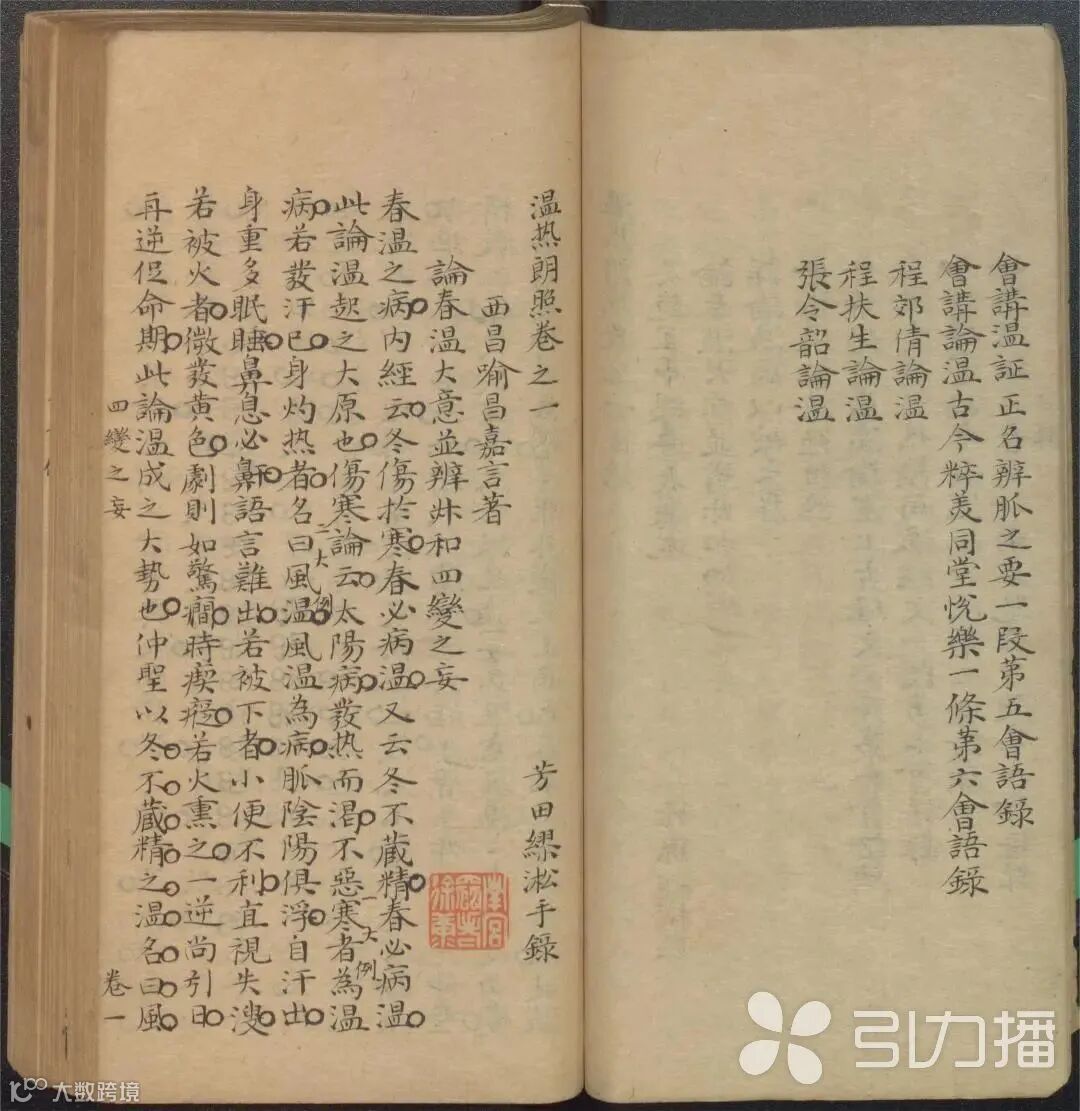 會講温証正名辨脈之要一段第五會語錄
會講論温古今粹美同堂悅樂一條第六會語錄
程郊倩論温
程扶生論温
張令韶論温
温热朗照卷之一
芳田繆淞手錄
西昌喻昌嘉言著
論春温大意並辨叔和四變之妄
春温之病内經云冬傷於寒春必病温又云冬不藏精春必病温
一大例
此論温起之大原也傷寒論云太陽病發热而渴不惡寒者為温
二大例
病若發汗已身灼热者名曰風温風温為病脈陰陽俱浮自汗出
身重多眠睡鼻息必鼾語言難出若被下者小便不利直視失溲
若被火者微發黄色劇則如驚癇時瘈瘲若火熏之一逆尚引日
再逆促命期此論温成之大勢也仲聖以冬不藏精之温名曰風
四變之妄
卷一
引力播
大数跨境